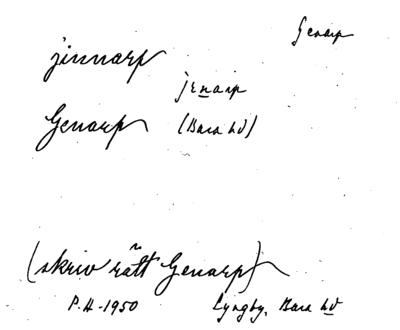 Genarp
jinnarp
jenarp
Genarp (Bara hd)
(skriv rätt Genarp)
P.H-1950 Lyngby, Bara hd